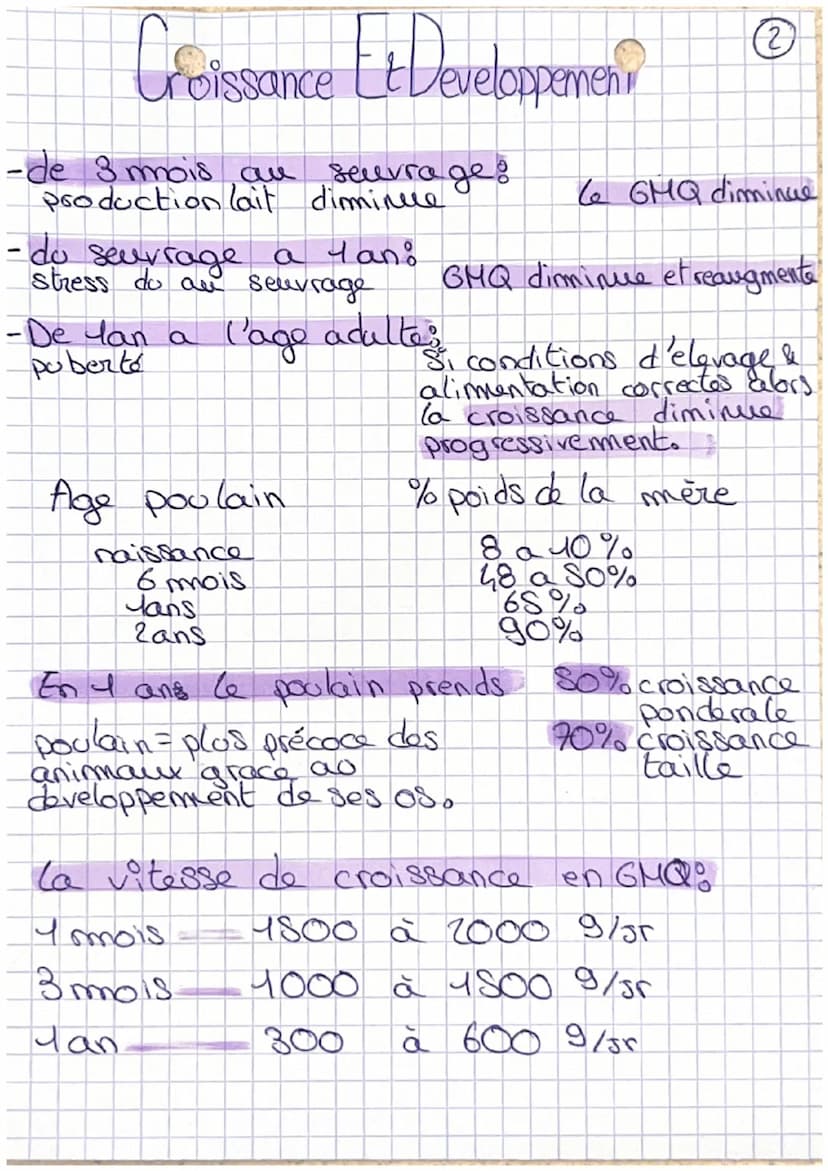 Croissance Et Developpement
2
-de 3 mois au seuvrage:
production lait diminue
le GMQ diminue
-du seuvrage a 1 an:
stress du au seuvrage
GMQ diminue et reaugmente
-De 1an a l'age adulte:
puberté
Si conditions d'elevage &
alimentation correctes alors
la croissance diminue
progressivement.
Age poulain % poids de la mère
naissance 8 a 10%
6 mois 48 a 50%
1ans 65%
2ans 90%
En 1 ans le poulain prends 50% croissance
ponderale
70% croissance
taille
poulain = plus précoce des
animaux grace au
developpement de ses os.
La vitesse de croissance en GMQ:
1 mois — 1500 à 2000 g/jr
3 mois — 1000 à 1500 g/jr
1 an — 300 à 600 g/jr